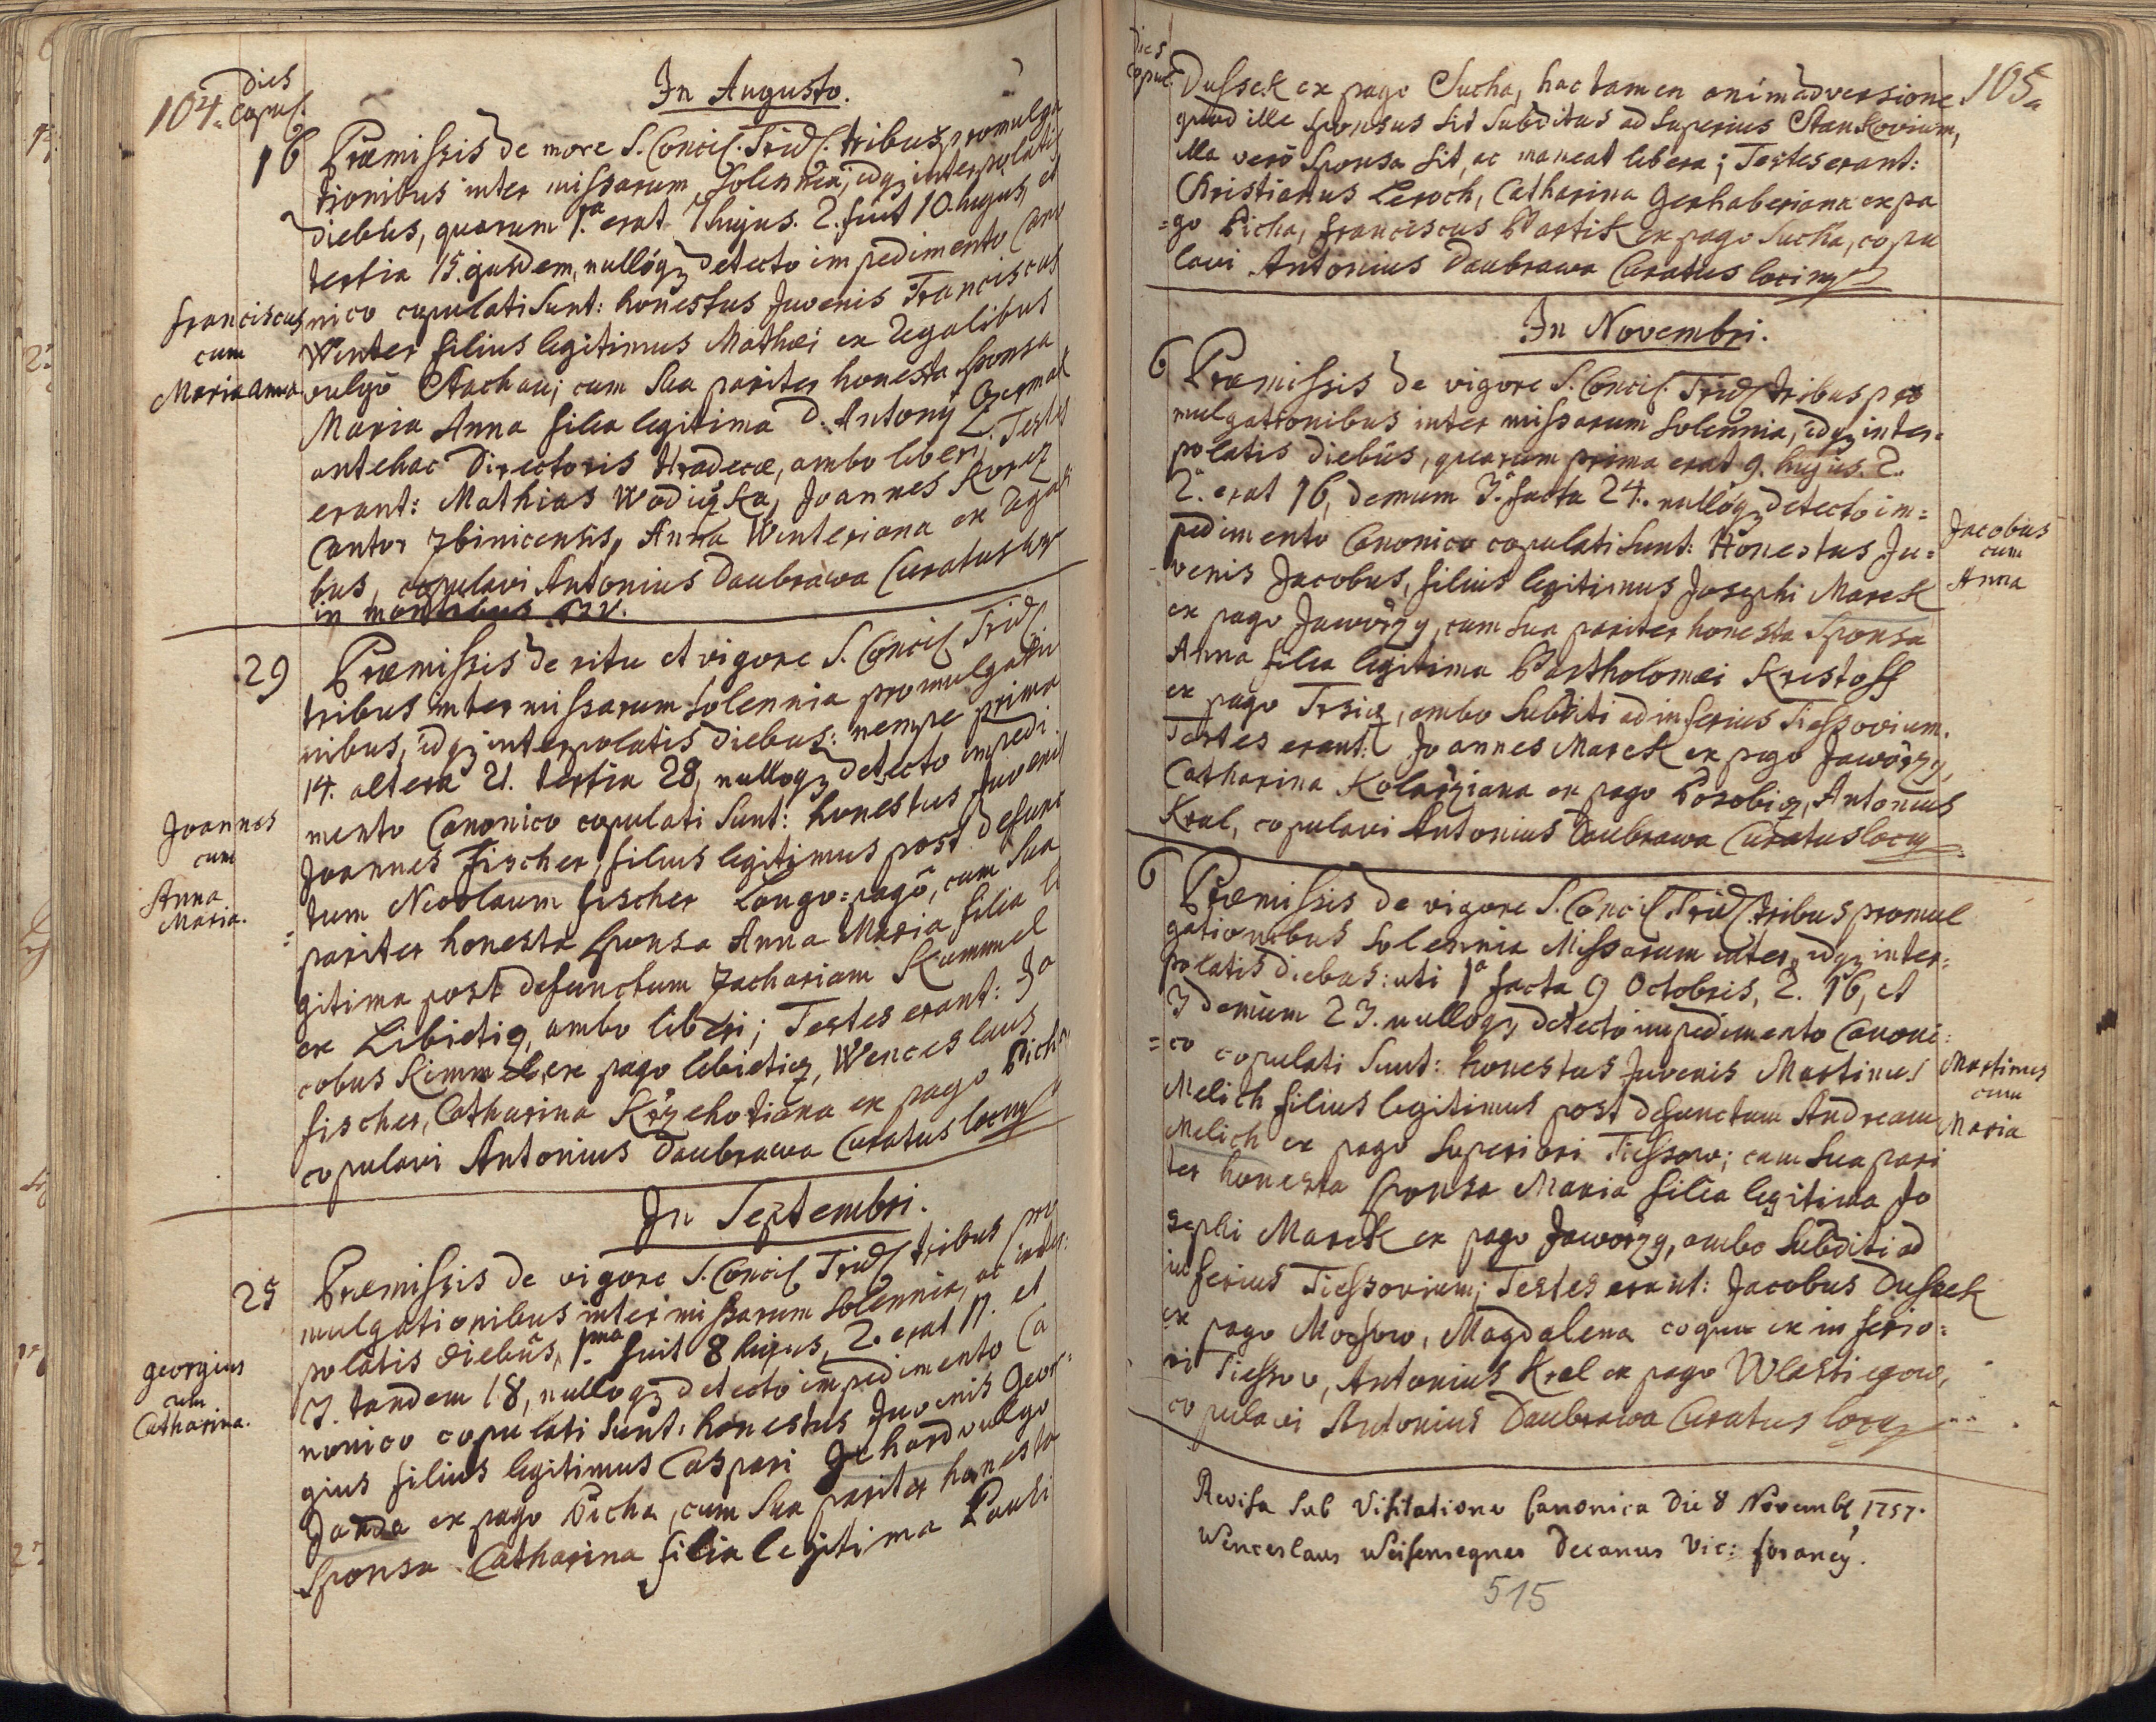 104.
Dies
Copul.
In Augusto.
16 Præmissis de more S. Concil. Trid. tribus promulga
tionibus inter missarum Solennia, idq; interpolatis
diebus, quarum 1.a erat 7 hujus. 2. fuit 10. hujus, et
tertia 15. ejusdem, nullóq; detecto impedimento Cano
nico copulati Sunt: honestus Juvenis Franciscus
Franciscus
cum
Maria anna
Winter filius legitimus Mathæi ex Regalibus
vulgò Stachau; cum sua pariter honesta sponsa
Maria Anna filia legitima D. Antonij Czermak
antehac Directoris Hradecæ, ambo liberi. Testes
erant: Mathias Wodiczka, Joannes Korez
Cantor Zbinicensis, Anna Winteriana ex Regali
bus, copulavi Antonius Daubrawa Curatus
in montibus
29 Præmissis de ritu et vigore S. Concil. Trid.
tribus inter missarum Solennia promulgatio
nibus, idq; interpolatis diebus: nempe prima
14. altera 21. tertia 28, nulloq; detecto impedi
mento Canonico copulati Sunt: honestus Juvenis
Joannes
cum
Anna
Maria.
Joannes Fischer, filius legitimus post defunc
tum Nicolaum Fischer Longo=pagô, cum sua
pariter honesta Sponsa Anna Maria filia le
gitima post defunctum Zachariam Kummel
ex Libietiz, ambo liberi; Testes erant: Ja
cobus Kimmel ex pago libieticz, Wenceslaus
Fischer, Catharina Krzehotiana ex pago Picha
copulavi Antonius Daubrawa Curatus loci
In Septembri.
25 Præmissis de vigore S. Concil. Trid. tribus pro
mulgationibus inter missarum Solennia, ac inter=
polatis diebus, 1.ma fuit 8 hujus, 2. erat 11. et
3. tandem 18, nulloq; detecto impedimento Ca
nonico copulati Sunt: honestus Juvenis Geor=
Georgius
cum
Catharina.
gius filius legitimus Caspari Gehard vulgo
Janda ex pago Picha, cum sua pariter honesta
Sponsa Catharina filia legitima Pauli
Dies
Copul.
105.
Dussek ex pago Sucha, hac tamen animadversione
quod ille Sponsus Sit Subditus ad Superius Stankovium,
illa verò Sponsa Sit, ac maneat libera; Testes erant:
Christianus Leroch, Catharina Gerhaberiana ex pa
=go Picha, Franciscus Bartik ex pago Sucha, copu
lavi Antonius Daubrawa Curatus loci
In Novembri.
6 Præmissis de vigore S. Concil. Trid. tribus pro
mulgationibus inter missarum Solennia, idq; inter=
polatis diebus, quarum prima erat 9. hujus. 2.
2.a erat 16, demum 3.a facta 24. nullóq; detecto im=
pedimento Canonico copulati Sunt: Honestus Ju=
venis Jacobus, filius legitimus Josephi Marek
Jacobus
cum
Anna
ex pago Jaworzy, cum sua pariter honesta Sponsa
Anna filia legitima Bartholomæi Kristoff
ex pago Trsicz, ambo Subditi ad inferius Tiessovium.
Testes erant: Joannes Marek ex pago Jaworzy,
Catharina Kolarziana ex pago Posobicz, Antonius
Kral, copulavi Antonius Daubrawa Curatus loci
6 Præmissis de vigore S. Concil. Trid. tribus promul
gationibus Solennia Missarum inter, idq; inter=
polatis diebus: uti 1.a facta 9 Octobris, 2. 16, et
3 demum 23. nulloq; detecto impedimento Canoni=
=co copulati Sunt: honestus Juvenis Martinus
Martinus
cum
Maria
Melich filius legitimus post defunctum Andream
Melich ex pago Superiori Tiessow; cum sua pari
ter honesta Sponsa Maria filia legitima Jo
sephi Marek ex pago Jaworzy, ambo Subditi ad
inferius Tiessovium; Testes erant: Jacobus Dussek
ex pago Mochow, Magdalena coqua ex inferio=
ri Tiessow, Antonius Kral ex pago Wlastiegow,
copulavi Antonius Daubrawa Curatus loci
Revisa sub Visitatione Canonica die 8 Novemb. 1757.
Wenceslaus Weisensegner Decanus Vic: foraneg.
515